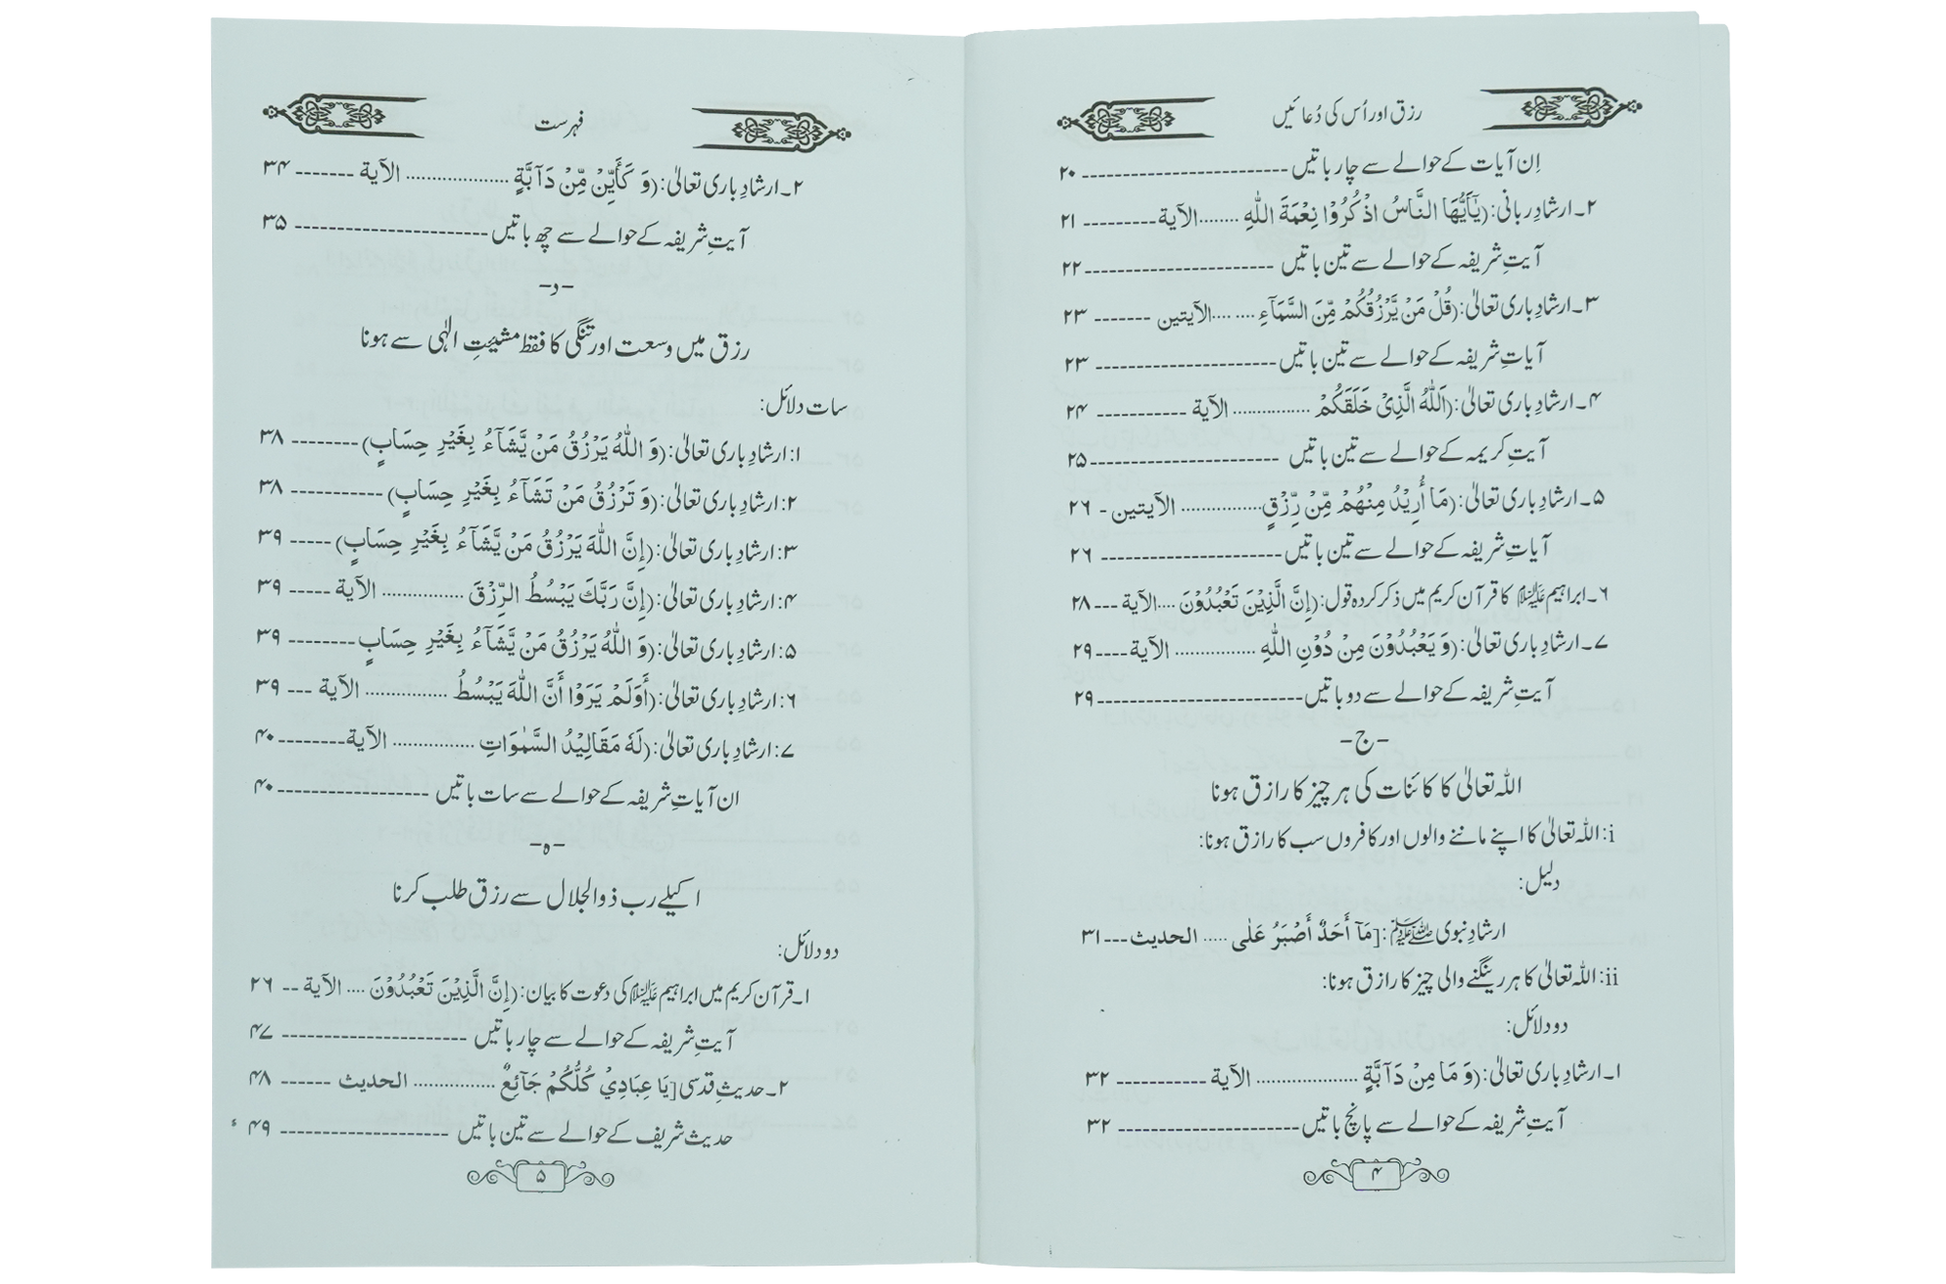 رزق اور اُس کی دُعائیں
اِن آیات کے حوالے سے چار باتیں --------------------------- ۲۰
۲۔ ارشادِ ربانی: (يٰٓاَيُّهَا النَّاسُ اذْكُرُوْا نِعْمَةَ اللّٰهِ ........ الآية ---------- ۲۱
آیتِ شریفہ کے حوالے سے تین باتیں ------------------------ ۲۲
۳۔ ارشادِ باری تعالیٰ: (قُلْ مَنْ يَّرْزُقُكُمْ مِّنَ السَّمَآءِ ........ الآيتين ------- ۲۳
آیاتِ شریفہ کے حوالے سے تین باتیں ----------------------- ۲۳
۴۔ ارشادِ باری تعالیٰ: (اَللّٰهُ الَّذِيْ خَلَقَكُمْ ............... الآية ------------ ۲۴
آیتِ کریمہ کے حوالے سے تین باتیں ------------------------ ۲۵
۵۔ ارشادِ باری تعالیٰ: (مَا أُرِيْدُ مِنْهُمْ مِّنْ رِّزْقٍ ............... الآيتين - ۲۶
آیاتِ شریفہ کے حوالے سے تین باتیں ----------------------- ۲۶
۶۔ ابراہیم علیہ السلام کا قرآن کریم میں ذکر کردہ قول: (إِنَّ الَّذِيْنَ تَعْبُدُوْنَ .... الآية --- ۲۸
۷۔ ارشادِ باری تعالیٰ: (وَ يَعْبُدُوْنَ مِنْ دُوْنِ اللّٰهِ ............... الآية ---- ۲۹
آیتِ شریفہ کے حوالے سے دو باتیں ------------------------- ۲۹
-ج-
اللہ تعالیٰ کا کائنات کی ہر چیز کا رازق ہونا
i: اللہ تعالیٰ کا اپنے ماننے والوں اور کافروں سب کا رازق ہونا:
دلیل:
ارشادِ نبوی ﷺ: [مَآ أَحَدٌ أَصْبَرُ عَلٰى ..... الحديث --- ۳۱
ii: اللہ تعالیٰ کا ہر رینگنے والی چیز کا رازق ہونا:
دو دلائل:
۱۔ ارشادِ باری تعالیٰ: (وَ مَا مِنْ دَآبَّةٍ .................... الآية ------------ ۳۲
آیتِ شریفہ کے حوالے سے پانچ باتیں ----------------------- ۳۲
۴
فہرست
۲۔ ارشادِ باری تعالیٰ: (وَ كَأَيِّنْ مِّنْ دَآبَّةٍ .................... الآية -------- ۳۴
آیتِ شریفہ کے حوالے سے چھ باتیں ------------------------ ۳۵
-د-
رزق میں وسعت اور تنگی کا فقط مشیّتِ الٰہی سے ہونا
سات دلائل:
۱: ارشادِ باری تعالیٰ: (وَ اللّٰهُ يَرْزُقُ مَنْ يَّشَآءُ بِغَيْرِ حِسَابٍ) --------- ۳۸
۲: ارشادِ باری تعالیٰ: (وَ تَرْزُقُ مَنْ تَشَآءُ بِغَيْرِ حِسَابٍ) ------------ ۳۸
۳: ارشادِ باری تعالیٰ: (إِنَّ اللّٰهَ يَرْزُقُ مَنْ يَّشَآءُ بِغَيْرِ حِسَابٍ) ----- ۳۹
۴: ارشادِ باری تعالیٰ: (إِنَّ رَبَّكَ يَبْسُطُ الرِّزْقَ ............... الآية ----- ۳۹
۵: ارشادِ باری تعالیٰ: (وَ اللّٰهُ يَرْزُقُ مَنْ يَّشَآءُ بِغَيْرِ حِسَابٍ --------- ۳۹
۶: ارشادِ باری تعالیٰ: (أَوَلَمْ يَرَوْا أَنَّ اللّٰهَ يَبْسُطُ ............... الآية --- ۳۹
۷: ارشادِ باری تعالیٰ: (لَهٗ مَقَالِيْدُ السَّمٰوَاتِ ............... الآية --------- ۴۰
ان آیاتِ شریفہ کے حوالے سے سات باتیں ------------------- ۴۰
-ہ-
اکیلے رب ذوالجلال سے رزق طلب کرنا
دو دلائل:
۱۔ قرآن کریم میں ابراہیم علیہ السلام کی دعوت کا بیان: (إِنَّ الَّذِيْنَ تَعْبُدُوْنَ .... الآية -- ۲۶
آیتِ شریفہ کے حوالے سے چار باتیں ------------------------ ۴۷
۲۔ حدیثِ قدسی [يَا عِبَادِيْ كُلُّكُمْ جَآئِعٌ ............... الحديث ------ ۴۸
حدیث شریف کے حوالے سے تین باتیں --------------------- ۴۹
۵